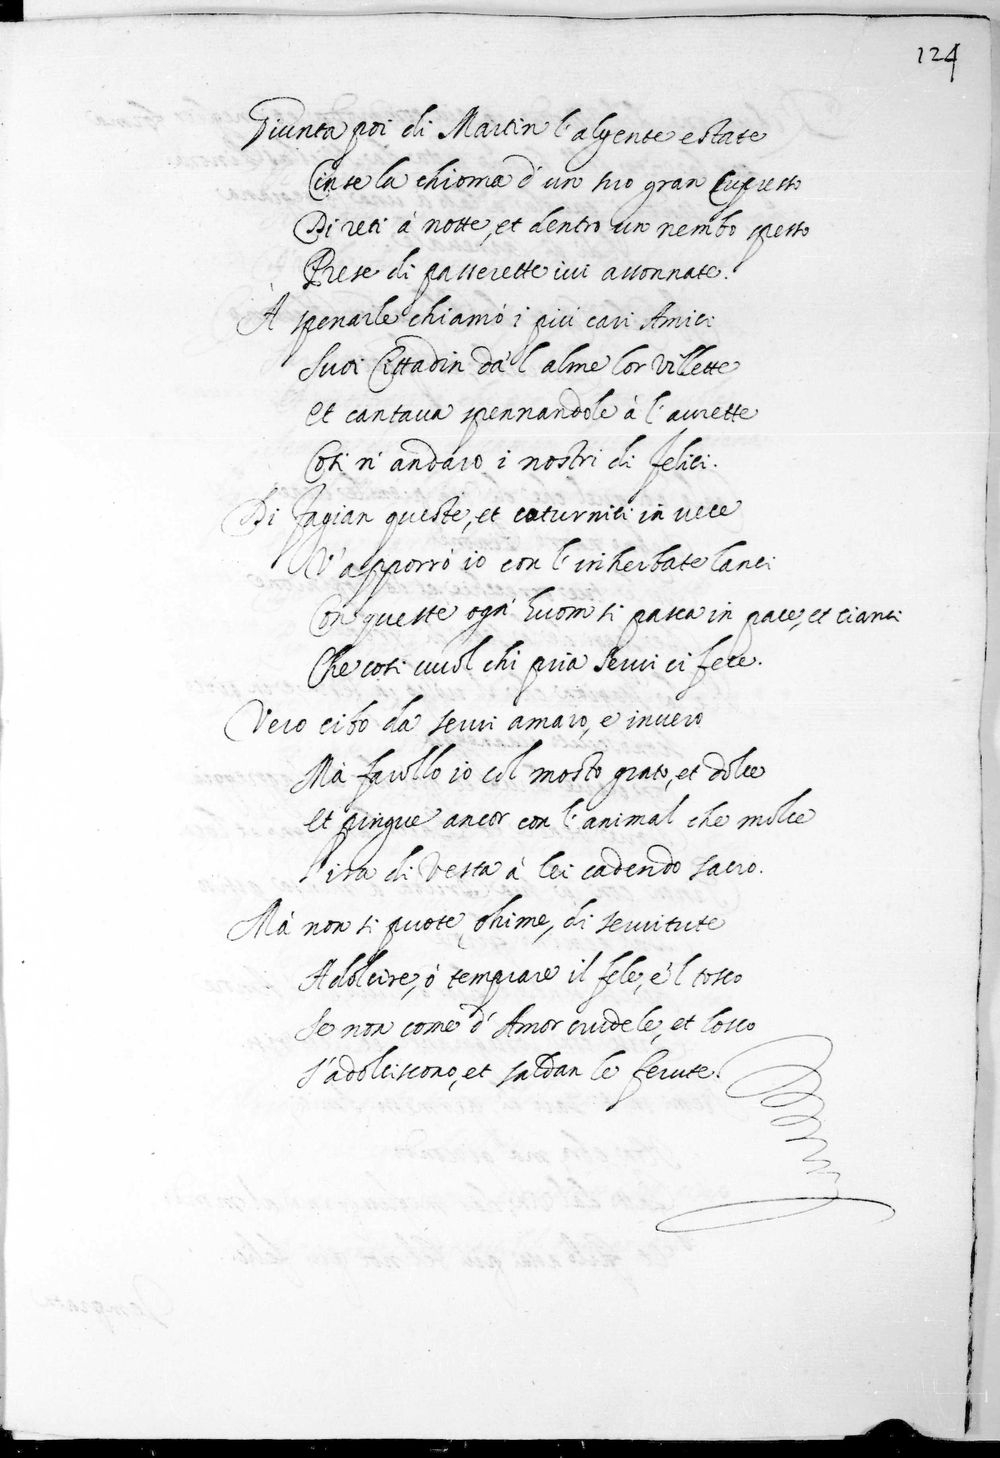 124
Giunta poi di Martin l'algente estate
Cinse la chioma d'un suo gran Cupresso
Di reti à notte, et dentro un nembo spesso
Prese di passerette ivi assonnate.
À spenarle chiamò i più cari Amici
Suoi Cittadin da l'alme lor Villette
Et cantava spennandole à l'aurette
Così n'andaro i nostri dì felici.
Di fagian queste, et coturnici in vece
V'apporrò io con l'inherbate lanci
Con queste ogn'huom si pasca in pace, et cianci
Che così vuol chi pria servi ci fece.
Vero cibo da servi amaro, e in vero
Mà farollo io col mosto grato, et dolce
Et pingue ancor con l'animal che molce
L'ira di Vesta à lei cadendo sacro.
Mà non si puote, ohime, di servitute
Adolcire, ò temprare il fele, e'l tosco
Se non come d'Amor crudele, et losco
S'adolciscono, et saldan le ferute.